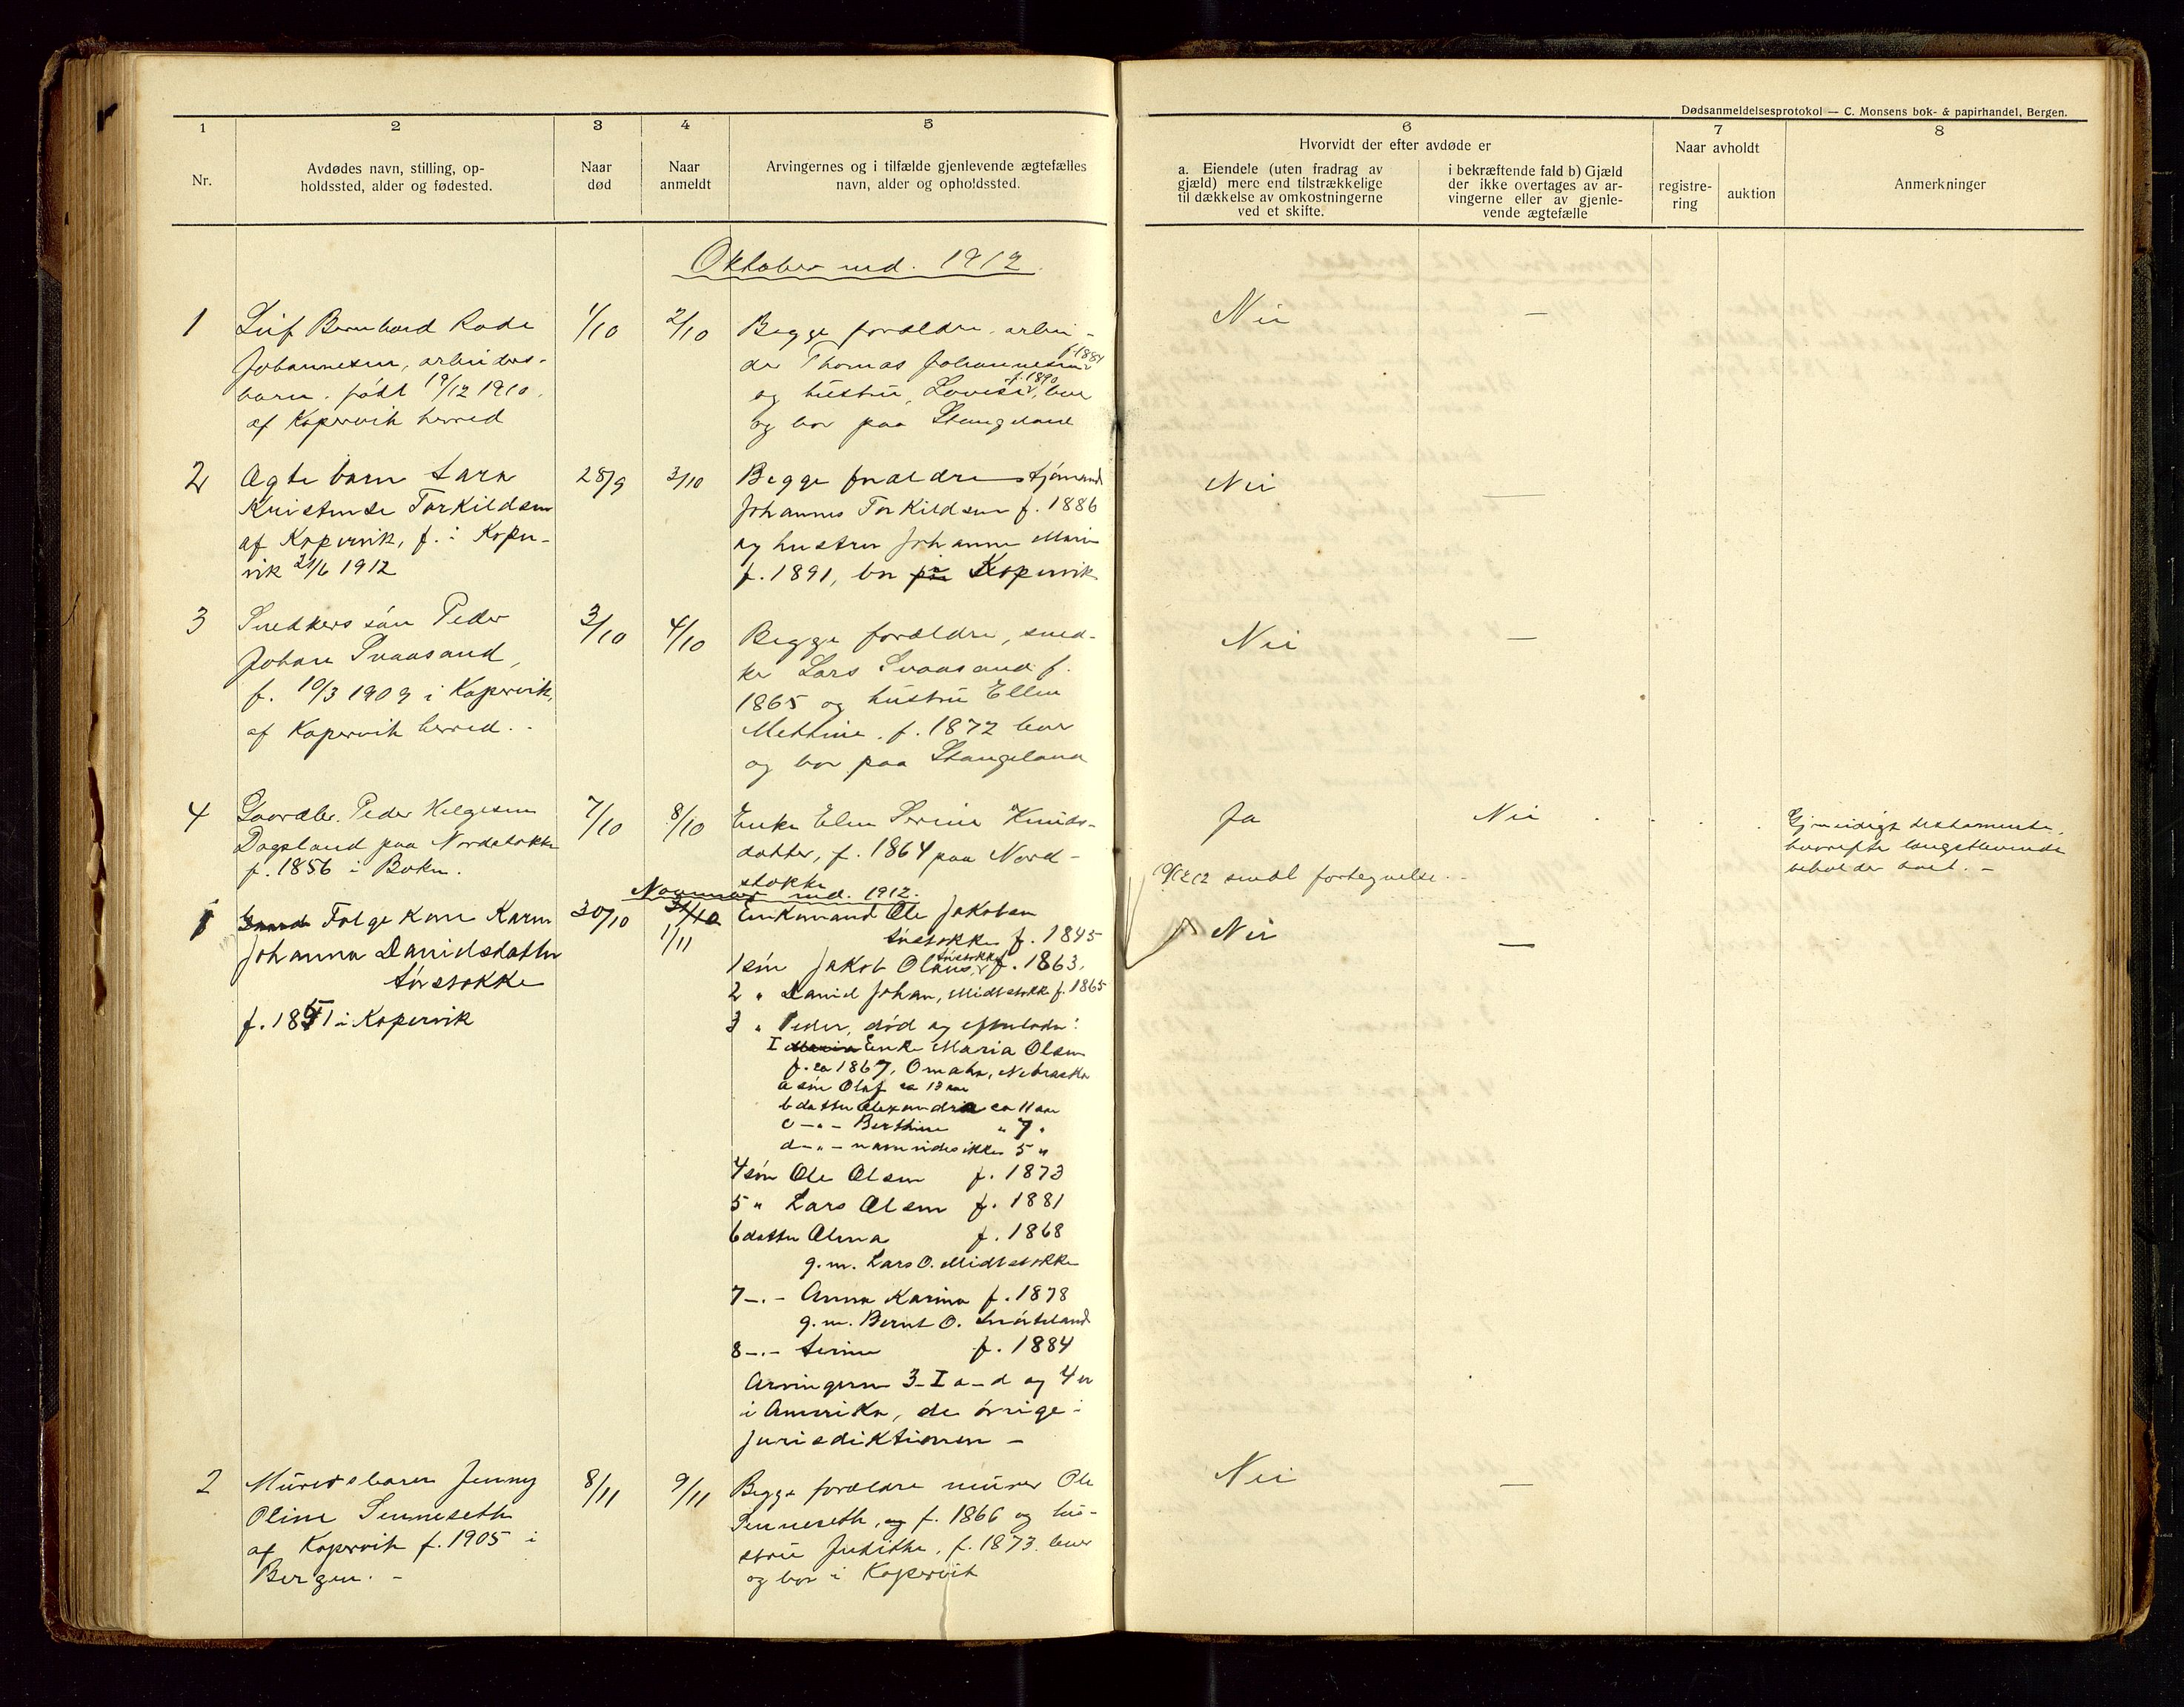 Dødsanmeldelsesprotokol — C. Monsens bok- & papirhandel, Bergen.
1 2 3 4 5 6 7 8
Nr.
Avdødes navn, stilling, op-
holdssted, alder og fødested.
Naar
død
Naar
anmeldt
Arvingernes og i tilfælde gjenlevende ægtefælles
navn, alder og opholdssted.
Hvorvidt der efter avdøde er
a. Eiendele (uten fradrag av
gjæld) mere end tilstrækkelige
til dækkelse av omkostningerne
ved et skifte.
i bekræftende fald b) Gjæld
der ikke overtages av ar-
vingerne eller av gjenle-
vende ægtefælle
Naar avholdt
registre-
ring
auktion
Anmerkninger
Oktober md. 1912
1
Leif Bernhard Rode
Johannesen, arbeiders-
barn. født 19/12 1910.
af Kopervik herred
1/10
2/10
Begge forældre, arbei-
der Thomas Johannesen f. 1884
og hustru, Lovise f. 1890, lever
og bor paa Stangeland
Nei
—
2
Ægte barn Sara
Kristense Torkildsen
af Kopervik, f. i Koper-
vik 21/6 1912
28/9
3/10
Begge forældre sjømand
Johannes Torkildsen f. 1886
og hustru Johanne Marie
f. 1891, bor på Kopervik
Nei
—
3
Snedkers søn Peder
Johan Svaasand,
f. 10/3 1909 i Kopervik,
af Kopervik herred. -
3/10
4/10
Begge forældre, sned-
ker Lars Svaasand f.
1865 og hustru Ellen
Methine. f. 1872 lever
og bor paa Stangeland
Nei
—
4
Gaardbr. Peder Helgesen
Dagsland paa Nordstokke
f. 1856 i Bokn.
7/10
8/10
Enke Elen Serine Knuds-
datter, f. 1864 paa Nord-
stokke
Ja
Nei
Gjensidigt testamente,
hvorefter længstlevende
beholder boet. -
sendt fortegnelse. -
November md. 1912.
1
Folgekone Karen
Johanna Danielsdatter
Sørstokke
f. 1841 i Kopervik
30/10
31/10
1/11
Enkemand Ole Jakobsen
Sørstokke f. 1845
1 søn Jakob Olaus Sørstokke f. 1863.
2 " Daniel Johan, Midtstokke f. 1865
3 " Peder, død og efterlader:
I Maria Enke Maria Olsen
f. ca 1867, Omaha, Nebraska
a søn Olaf ca 13 aar
b datter Alexandra ca 11 aar
c - " - Berthine " 7 "
d - " - navn vides ikke 5 "
4 søn Ole Olsen f. 1873
5 " Lars Olsen f. 1881
6 datter Olena f. 1868
g. m. Lars O. Midtstokke
7 - " - Anna Karina f. 1878
g. m. Bernt O. Snørteland
8 - " - Serine f. 1884
Arvingerne 3-I a-d og 4 er
i Amerika, de øvrige i
Jurisdiktionen -
Nei
—
2
Murersbarn Jenny
Oline Senneseth
af Kopervik f. 1905 i
Bergen. -
8/11
9/11
Begge forældre murer Ole
Senneseth, og f. 1866 og hu-
stru Judithe, f. 1873. lever
og bor i Kopervik
Nei
—